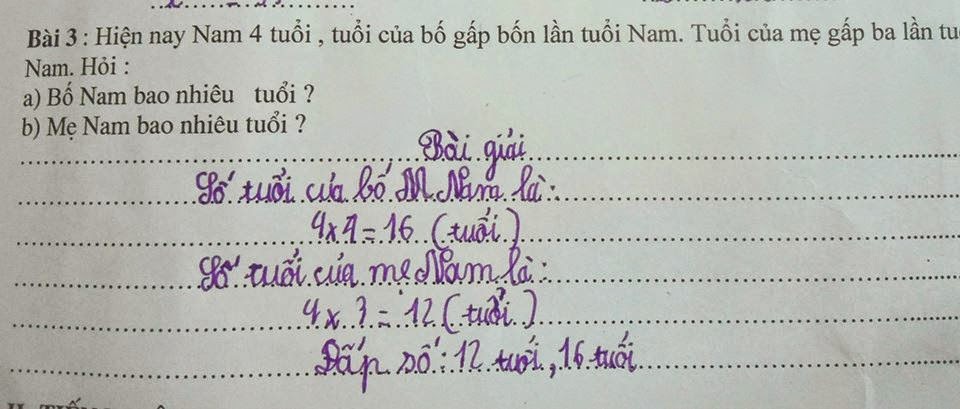 Bài 3 : Hiện nay Nam 4 tuổi , tuổi của bố gấp bốn lần tuổi Nam. Tuổi của mẹ gấp ba lần tu
Nam. Hỏi :
a) Bố Nam bao nhiêu tuổi ?
b) Mẹ Nam bao nhiêu tuổi ?
Bài giải
Số tuổi của bố M Nam là:
4 x 4 = 16 (tuổi)
Số tuổi của mẹ Nam là:
4 x 3 = 12 (tuổi)
Đấp số: 12 tuổi, 16 tuổi